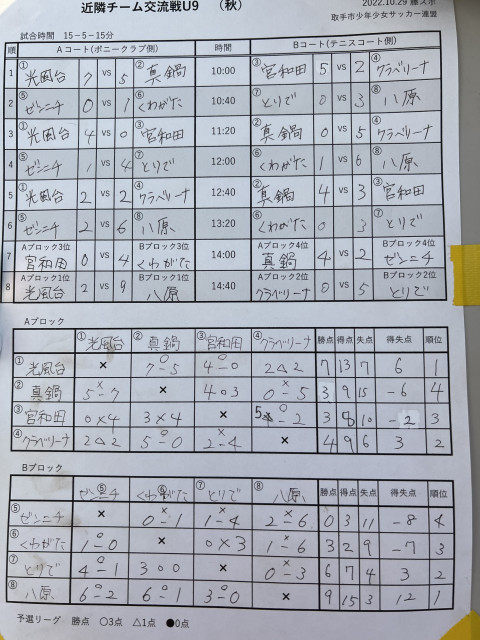 近隣チーム交流戦U9 （秋）
2022.10.29 藤スポ
取手市少年少女サッカー連盟
試合時間 15－5－15分
順 Aコート(ポニークラブ側) 時間 Bコート(テニスコート側)
1 ①光風台 7 vs 5 ②真鍋 10:00 ③宮和田 5 vs 2 ④クラベリーナ
2 ⑤ゼンニチ 0 vs 1 ⑥くわがた 10:40 ⑦とりで 0 vs 3 ⑧八原
3 ①光風台 4 vs 0 ③宮和田 11:20 ②真鍋 0 vs 5 ④クラベリーナ
4 ⑤ゼンニチ 1 vs 4 ⑦とりで 12:00 ⑥くわがた 1 vs 6 ⑧八原
5 ①光風台 2 vs 2 ④クラベリーナ 12:40 ②真鍋 4 vs 3 ③宮和田
6 ⑤ゼンニチ 2 vs 6 ⑧八原 13:20 ⑥くわがた 0 vs 3 ⑦とりで
7 Aブロック3位 宮和田 0 vs 4 Bブロック3位 くわがた 14:00 Aブロック4位 真鍋 4 vs 2 Bブロック4位 ゼンニチ
8 Aブロック1位 光風台 2 vs 9 Bブロック1位 八原 14:40 Aブロック2位 クラベリーナ 0 vs 5 Bブロック2位 とりで
Aブロック
①光風台 ②真鍋 ③宮和田 ④クラベリーナ 勝点 得点 失点 得失点 順位
①光風台 × 7○5 4○0 2△2 7 13 7 6 1
②真鍋 5×7 × 4○3 0×5 3 9 15 -6 4
③宮和田 0×4 3×4 × 5○2 3 8 10 -2 3
④クラベリーナ 2△2 5○0 2×4 × 4 9 6 3 2
Bブロック
⑤ゼンニチ ⑥くわがた ⑦とりで ⑧八原 勝点 得点 失点 得失点 順位
⑤ゼンニチ × 0×1 1×4 2×6 0 3 11 -8 4
⑥くわがた 1○0 × 0×3 1×6 3 2 9 -7 3
⑦とりで 4○1 3○0 × 0×3 6 7 4 3 2
⑧八原 6○2 6○1 3○0 × 9 15 3 12 1
予選リーグ 勝点 ○3点 △1点 ●0点